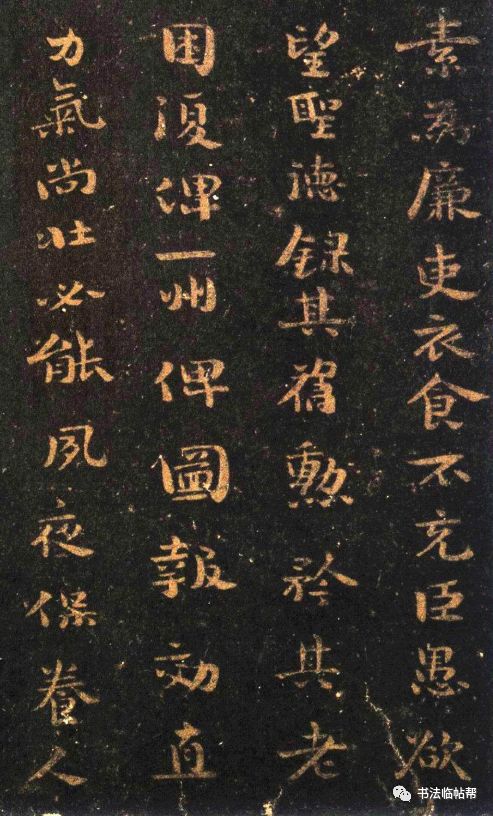 素為廉吏衣食不充臣愚欲
望聖德錄其舊勳矜其老
困復俾一州俾圖報効直
力氣尚壯必能夙夜保養人
书法临帖帮